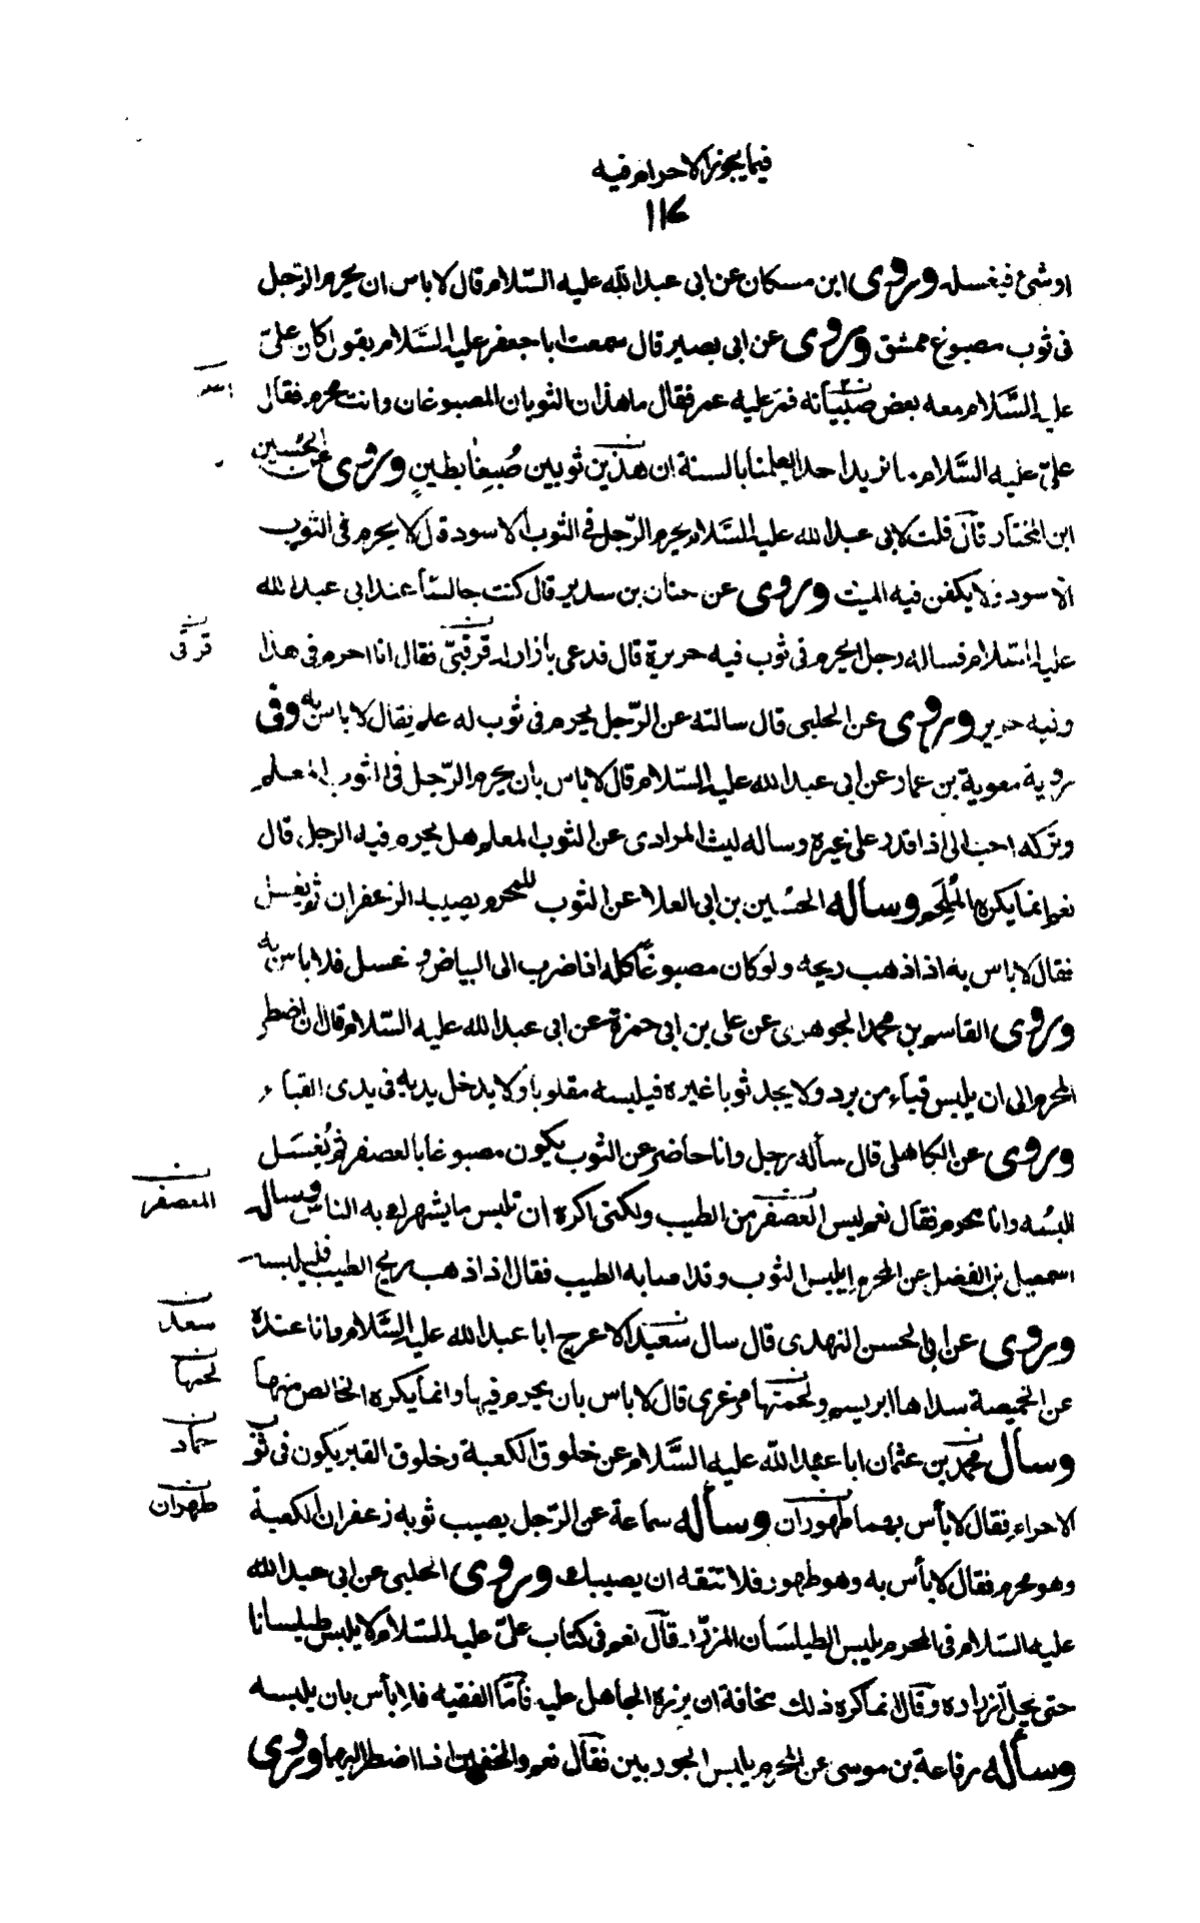 فيما يجوز الاحرام فيه
١١٤
او شئ فيغسله وروى ابن مسكان عن ابى عبد الله عليه السّلام قال لا باس ان يحرم الرّجل
فى ثوب مصبوغ ممشق وروى عن ابى بصير قال سمعت ابا جعفر عليه السَّلام يقول كان علىّ
عليه السَّلام معه بعض صبيانه فمرّ عليه عمر فقال ما هذان الثوبان المصبوغان وانت محرم فقال
علىّ عليه السَّلام ما نريد احدا يعلمنا بالسنة ان هذين ثوبين صُبِغا بطينٍ وروى عن الحُسين
ابن المختار قال قلت لابى عبد الله عليه السَّلام يحرم الرّجل فى الثوب الاسود قال لا يحرم فى الثوب
الاسود ولا يكفن فيه الميت وروى عن حنان بن سدير قال كنت جالسًا عند ابى عبد الله
عليه السّلام فساله رجل ايحرم فى ثوب فيه حريرة قال فدعى بازار له قرقبىّ فقال انا احرم فى هذا
قرقى
وفيه حرير وروى عن الحلبى قال سالته عن الرّجل يحرم فى ثوب له علم فقال لا باس به وفى
رواية معوية بن عمار عن ابى عبد الله عليه السّلام قال لا باس بان يحرم الرّجل فى الثوب المعلم
وتركه احب الى اذا قدر على غيره وساله ليث المرادى عن الثوب المعلم هل يحرم فيه الرجل قال
نعم انما يكره المُلْحَم وسأله الحسين بن ابى العلا عن الثوب للمحرم يصيبه الزعفران ثم يغسل
فقال لا باس به اذا ذهب ريحه ولو كان مصبوغًا كله اذا ضرب الى البياض و غسل فلا باس به
وروى القاسم بن محمد الجوهرى عن على بن ابى حمزة عن ابى عبد الله عليه السّلام قال ان اضطر
المحرم الى ان يلبس قباء من برد ولا يجد ثوبا غيره فيلبسه مقلوبا ولا يدخل يديه فى يدى القباء
وروى عن الكاهلى قال سأله رجل وانا حاضر عن الثوب يكون مصبوغا بالعصفر ثم يُغسَل
البسُه وانا محرم فقال نعم ليس العصفر من الطيب ولكنى اكره ان تلبس ما يشهرك به الناس وسال
المعصفر
اسمعيل بن الفضل عن المحرم ايلبس الثوب وقد اصابه الطيب فقال اذا ذهب ريح الطيب فليلبسه
وروى عن ابى الحسن النهدى قال سال سَعيد الاعرج ابا عبد الله عليه السَّلام وانا عنده
سعد
عن الخميصة سداها ابريسم ولحمتها مرعزى قال لا باس بان يحرم فيها وانما يكره الخالص منها
لحمها
وسأل محمد بن عثمان ابا عبد الله عليه السَّلام عن خلوق الكعبة وخلوق القبر يكون فى ثوب
حماد
الاحرام فقال لا بأس بهما طهوران وسأله سماعة عن الرّجل يصيب ثوبه زعفران الكعبة
طهران
وهو محرم فقال لا بأس به وهو طهور فلا تتقه ان يصيبك وروى الحلبى عن ابى عبد الله
عليه السّلام فى المحرم يلبس الطيلسان المزرّر قال نعم فى كتاب علىّ عليه السّلام لا يلبس طيلسانا
حتى يحل ازراره وقال انما كره ذلك مخافة ان يزره الجاهل عليه فأمّا الفقيه فلا بأس بان يلبسه
وسأله رفاعة بن موسى عن المحرم يلبس الجوربين فقال نعم والخفين اذا اضطر اليهما وروى